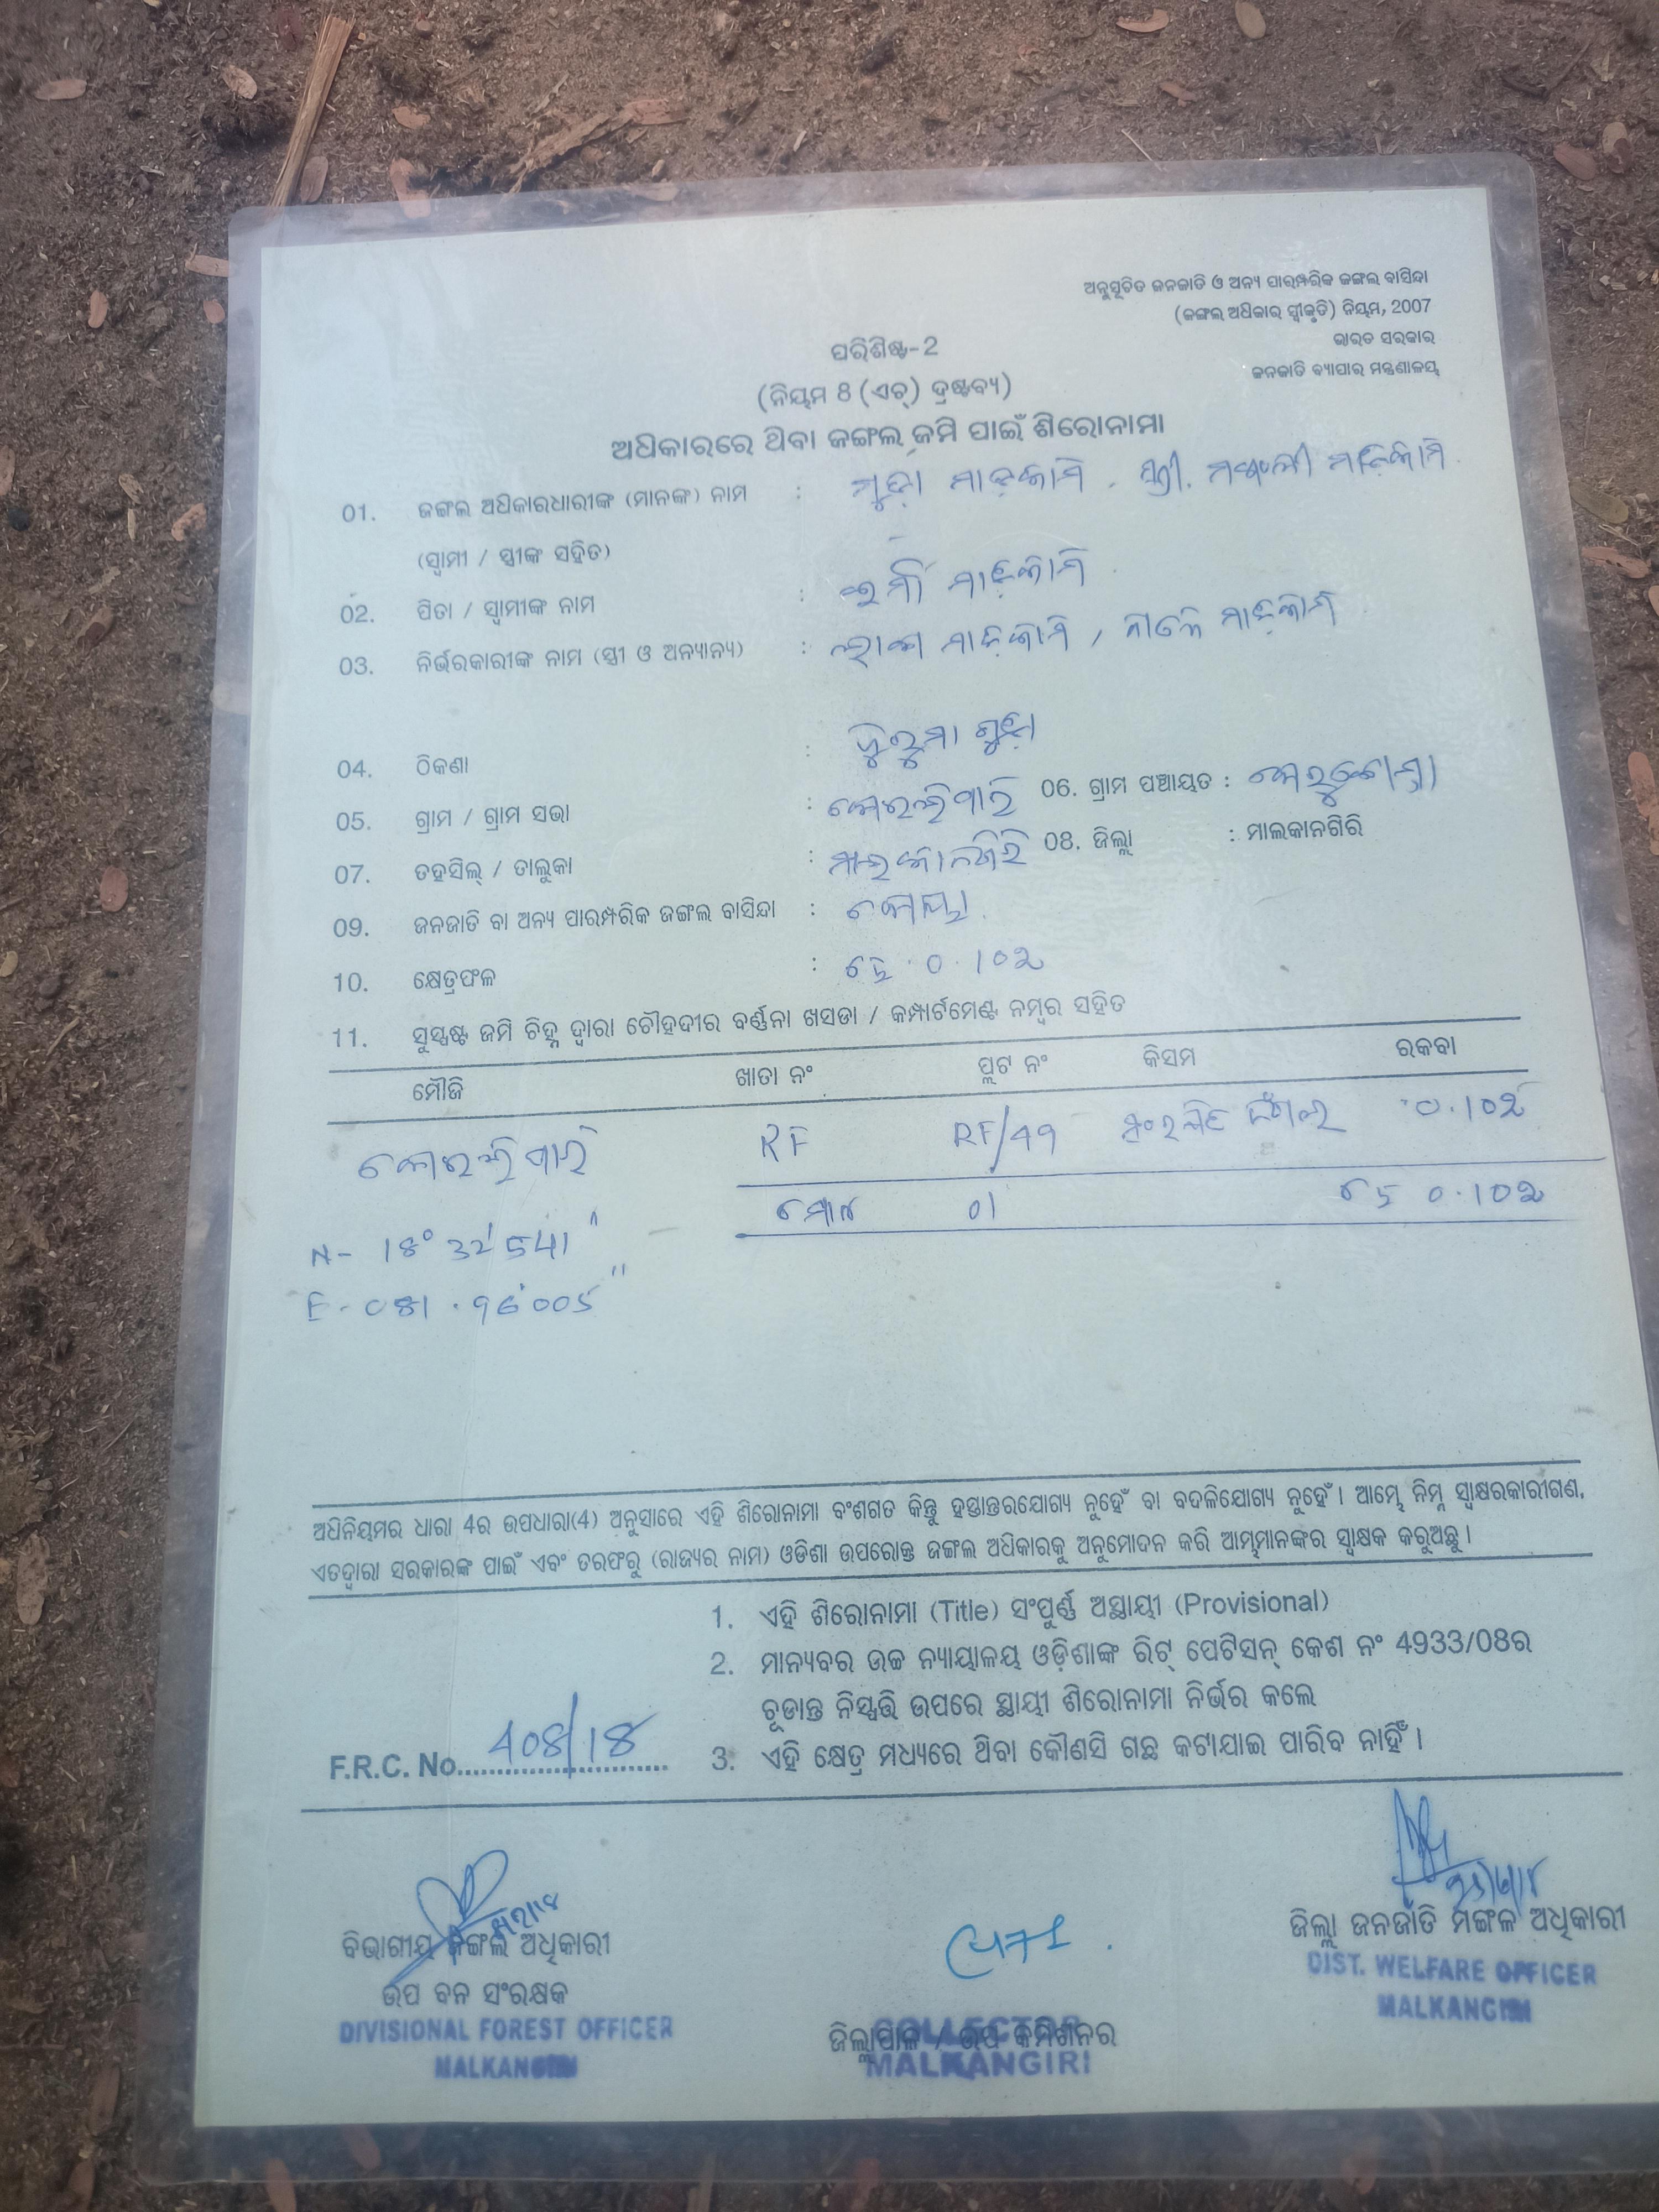 ଅନୁସୂଚିତ ଜନଜାତି ଓ ଅନ୍ୟ ପାରମ୍ପରିକ ଜଙ୍ଗଲ ବାସିନ୍ଦା
(ଜଙ୍ଗଲ ଅଧିକାର ସ୍ୱୀକୃତି) ନିୟମ, 2007
ଭାରତ ସରକାର
ଜନଜାତି ବ୍ୟାପାର ମନ୍ତ୍ରଣାଳୟ
ପରିଶିଷ୍ଟ-2
(ନିୟମ 8 (ଏଚ୍) ଦ୍ରଷ୍ଟବ୍ୟ)
ଅଧିକାରରେ ଥିବା ଜଙ୍ଗଲ ଜମି ପାଇଁ ଶିରୋନାମା
01. ଜଙ୍ଗଲ ଅଧିକାରଧାରୀଙ୍କ (ମାନଙ୍କ) ନାମ : ମାଡ଼କାମି ମାଡ଼କାମି
(ସ୍ୱାମୀ / ସ୍ତ୍ରୀଙ୍କ ସହିତ)
02. ପିତା / ସ୍ୱାମୀଙ୍କ ନାମ : ମାଡ଼କାମି
03. ନିର୍ଭରକାରୀଙ୍କ ନାମ (ସ୍ତ୍ରୀ ଓ ଅନ୍ୟାନ୍ୟ) : ମାଡ଼କାମି, ମାଡ଼କାମି
04. ଠିକଣା :
05. ଗ୍ରାମ / ଗ୍ରାମ ସଭା : 06. ଗ୍ରାମ ପଞ୍ଚାୟତ :
07. ତହସିଲ୍ / ତାଲୁକା : ମାଲକାନଗିରି 08. ଜିଲ୍ଲା : ମାଲକାନଗିରି
09. ଜନଜାତି ବା ଅନ୍ୟ ପାରମ୍ପରିକ ଜଙ୍ଗଲ ବାସିନ୍ଦା : କୋୟା
10. କ୍ଷେତ୍ରଫଳ : ହେ. ୦.୧୦୨
11. ସୁସ୍ପଷ୍ଟ ଜମି ଚିହ୍ନ ଦ୍ୱାରା ଚୌହଦୀର ବର୍ଣ୍ଣନା ଖସଡା / କମ୍ପାର୍ଟମେଣ୍ଟ ନମ୍ବର ସହିତ
ମୌଜି ଖାତା ନଂ ପ୍ଲଟ ନଂ କିସମ ରକବା
RF RF/49 ସଂରକ୍ଷିତ ଜଙ୍ଗଲ ୦.୧୦୨
ମୋଟ 01 ହେ ୦.୧୦୨
N- 18° 32' 541"
ଅଧିନିୟମର ଧାରା 4ର ଉପଧାରା(4) ଅନୁସାରେ ଏହି ଶିରୋନାମା ବଂଶଗତ କିନ୍ତୁ ହସ୍ତାନ୍ତରଯୋଗ୍ୟ ନୁହେଁ ବା ବଦଳିଯୋଗ୍ୟ ନୁହେଁ। ଆମ୍ଭେ ନିମ୍ନ ସ୍ୱାକ୍ଷରକାରୀଗଣ,
ଏତଦ୍ୱାରା ସରକାରଙ୍କ ପାଇଁ ଏବଂ ତରଫରୁ (ରାଜ୍ୟର ନାମ) ଓଡିଶା ଉପରୋକ୍ତ ଜଙ୍ଗଲ ଅଧିକାରକୁ ଅନୁମୋଦନ କରି ଆମ୍ଭମାନଙ୍କର ସ୍ୱାକ୍ଷକ କରୁଅଛୁ।
1. ଏହି ଶିରୋନାମା (Title) ସଂପୂର୍ଣ୍ଣ ଅସ୍ଥାୟୀ (Provisional)
2. ମାନ୍ୟବର ଉଚ୍ଚ ନ୍ୟାୟାଳୟ ଓଡ଼ିଶାଙ୍କ ରିଟ୍ ପେଟିସନ୍ କେଶ ନଂ 4933/08ର
ଚୂଡାନ୍ତ ନିସ୍ପତ୍ତି ଉପରେ ସ୍ଥାୟୀ ଶିରୋନାମା ନିର୍ଭର କଲେ
3. ଏହି କ୍ଷେତ୍ର ମଧ୍ୟରେ ଥିବା କୌଣସି ଗଛ କଟାଯାଇ ପାରିବ ନାହିଁ।
F.R.C. No. 408/18
ବିଭାଗୀୟ ଜଙ୍ଗଲ ଅଧିକାରୀ
ଉପ ବନ ସଂରକ୍ଷକ
DIVISIONAL FOREST OFFICER
MALKANGIRI
ଜିଲ୍ଲାପାଳ / ଉପ କମିଶନର
COLLECTOR
MALKANGIRI
ଜିଲ୍ଲା ଜନଜାତି ମଙ୍ଗଳ ଅଧିକାରୀ
DIST. WELFARE OFFICER
MALKANGIRI